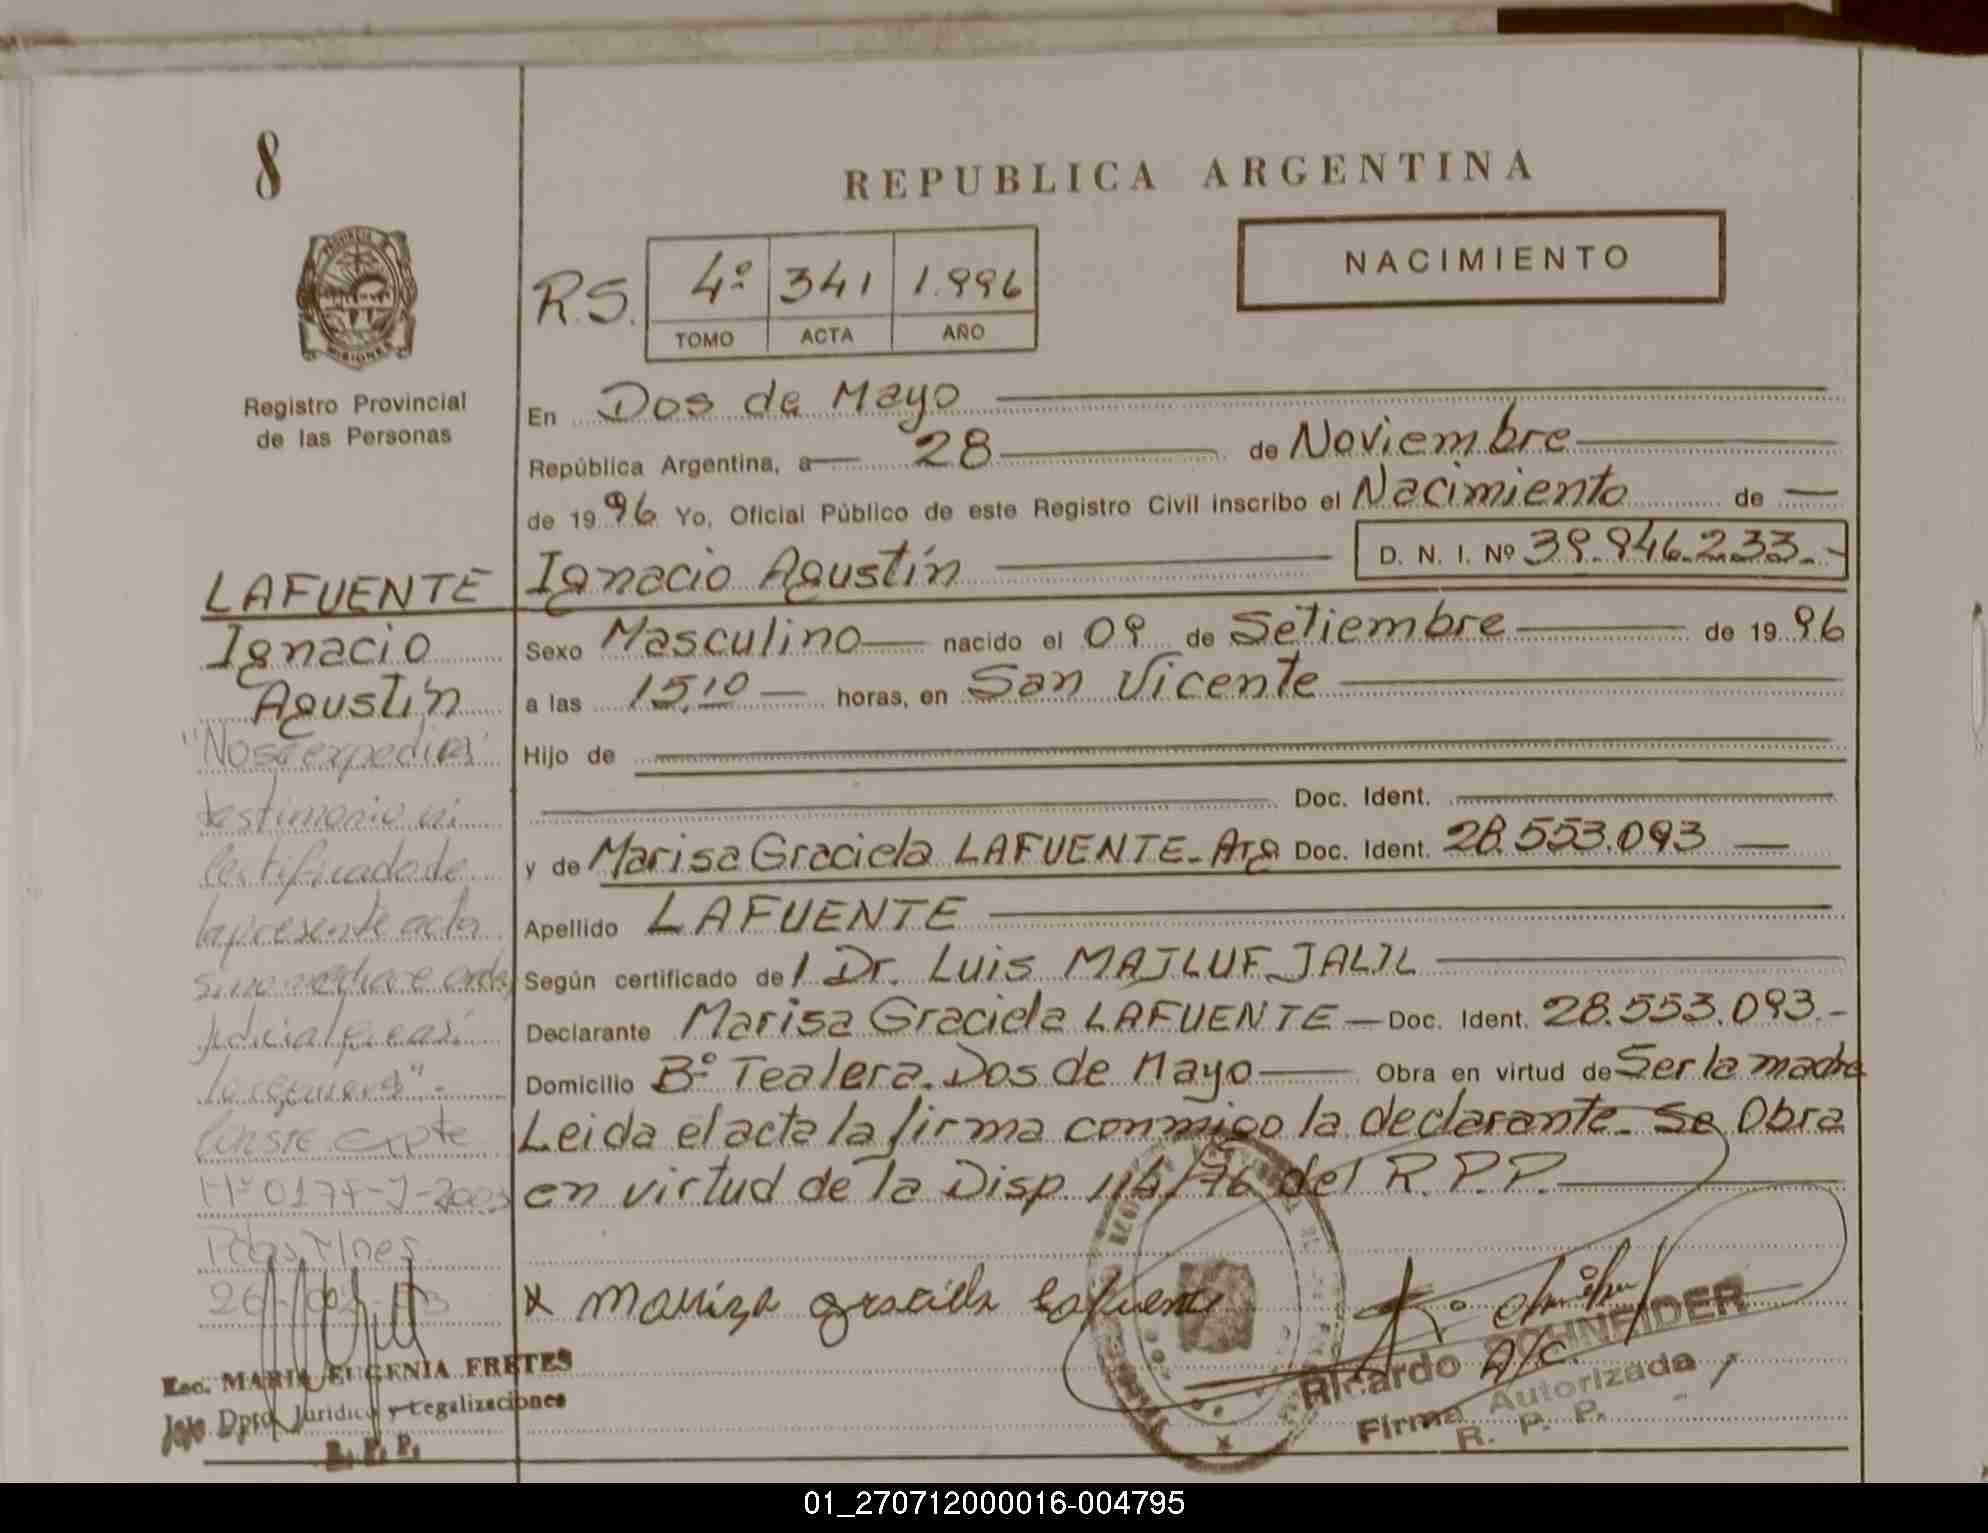 8
REPUBLICA ARGENTINA
NACIMIENTO
R.S. 4º 341 1.996
TOMO ACTA AÑO
PROVINCIA DE
MISIONES
Registro Provincial
de las Personas
En Dos de Mayo
República Argentina, a 28 de Noviembre
de 1996 Yo, Oficial Público de este Registro Civil inscribo el Nacimiento de
D. N. I. Nº 39.946.233.-
LAFUENTE Ignacio Agustín
Ignacio
Agustín
Sexo Masculino nacido el 09 de Setiembre de 1996
a las 15,10 horas, en San Vicente
Hijo de
Doc. Ident.
y de Marisa Graciela LAFUENTE - Arg Doc. Ident. 28.553.093
Apellido LAFUENTE
Según certificado de l Dr. Luis MAJLUF JALIL
Declarante Marisa Graciela LAFUENTE - Doc. Ident. 28.553.093.-
Domicilio Bº Tealera. Dos de Mayo Obra en virtud de Ser la madre
Leida el acta la firma conmigo la declarante. Se Obra
en virtud de la Disp 114/76 del R.P.P.
"No se expedirá
testimonio ni
certificado de
la presente acta
sino mediare orden
judicial que así
lo requiera".-
Conste Expte
Nº 017
2003
Pdas, Mnes
26
x Mariza graciela Lafuente
A/C.
Ricardo SCHNEIDER
Firma Autorizada
R. P. P.
Esc. MARIA EUGENIA FRETES
Jefe Dpto. Juridico y Legalizaciones
R. P. P.
01_270712000016-004795